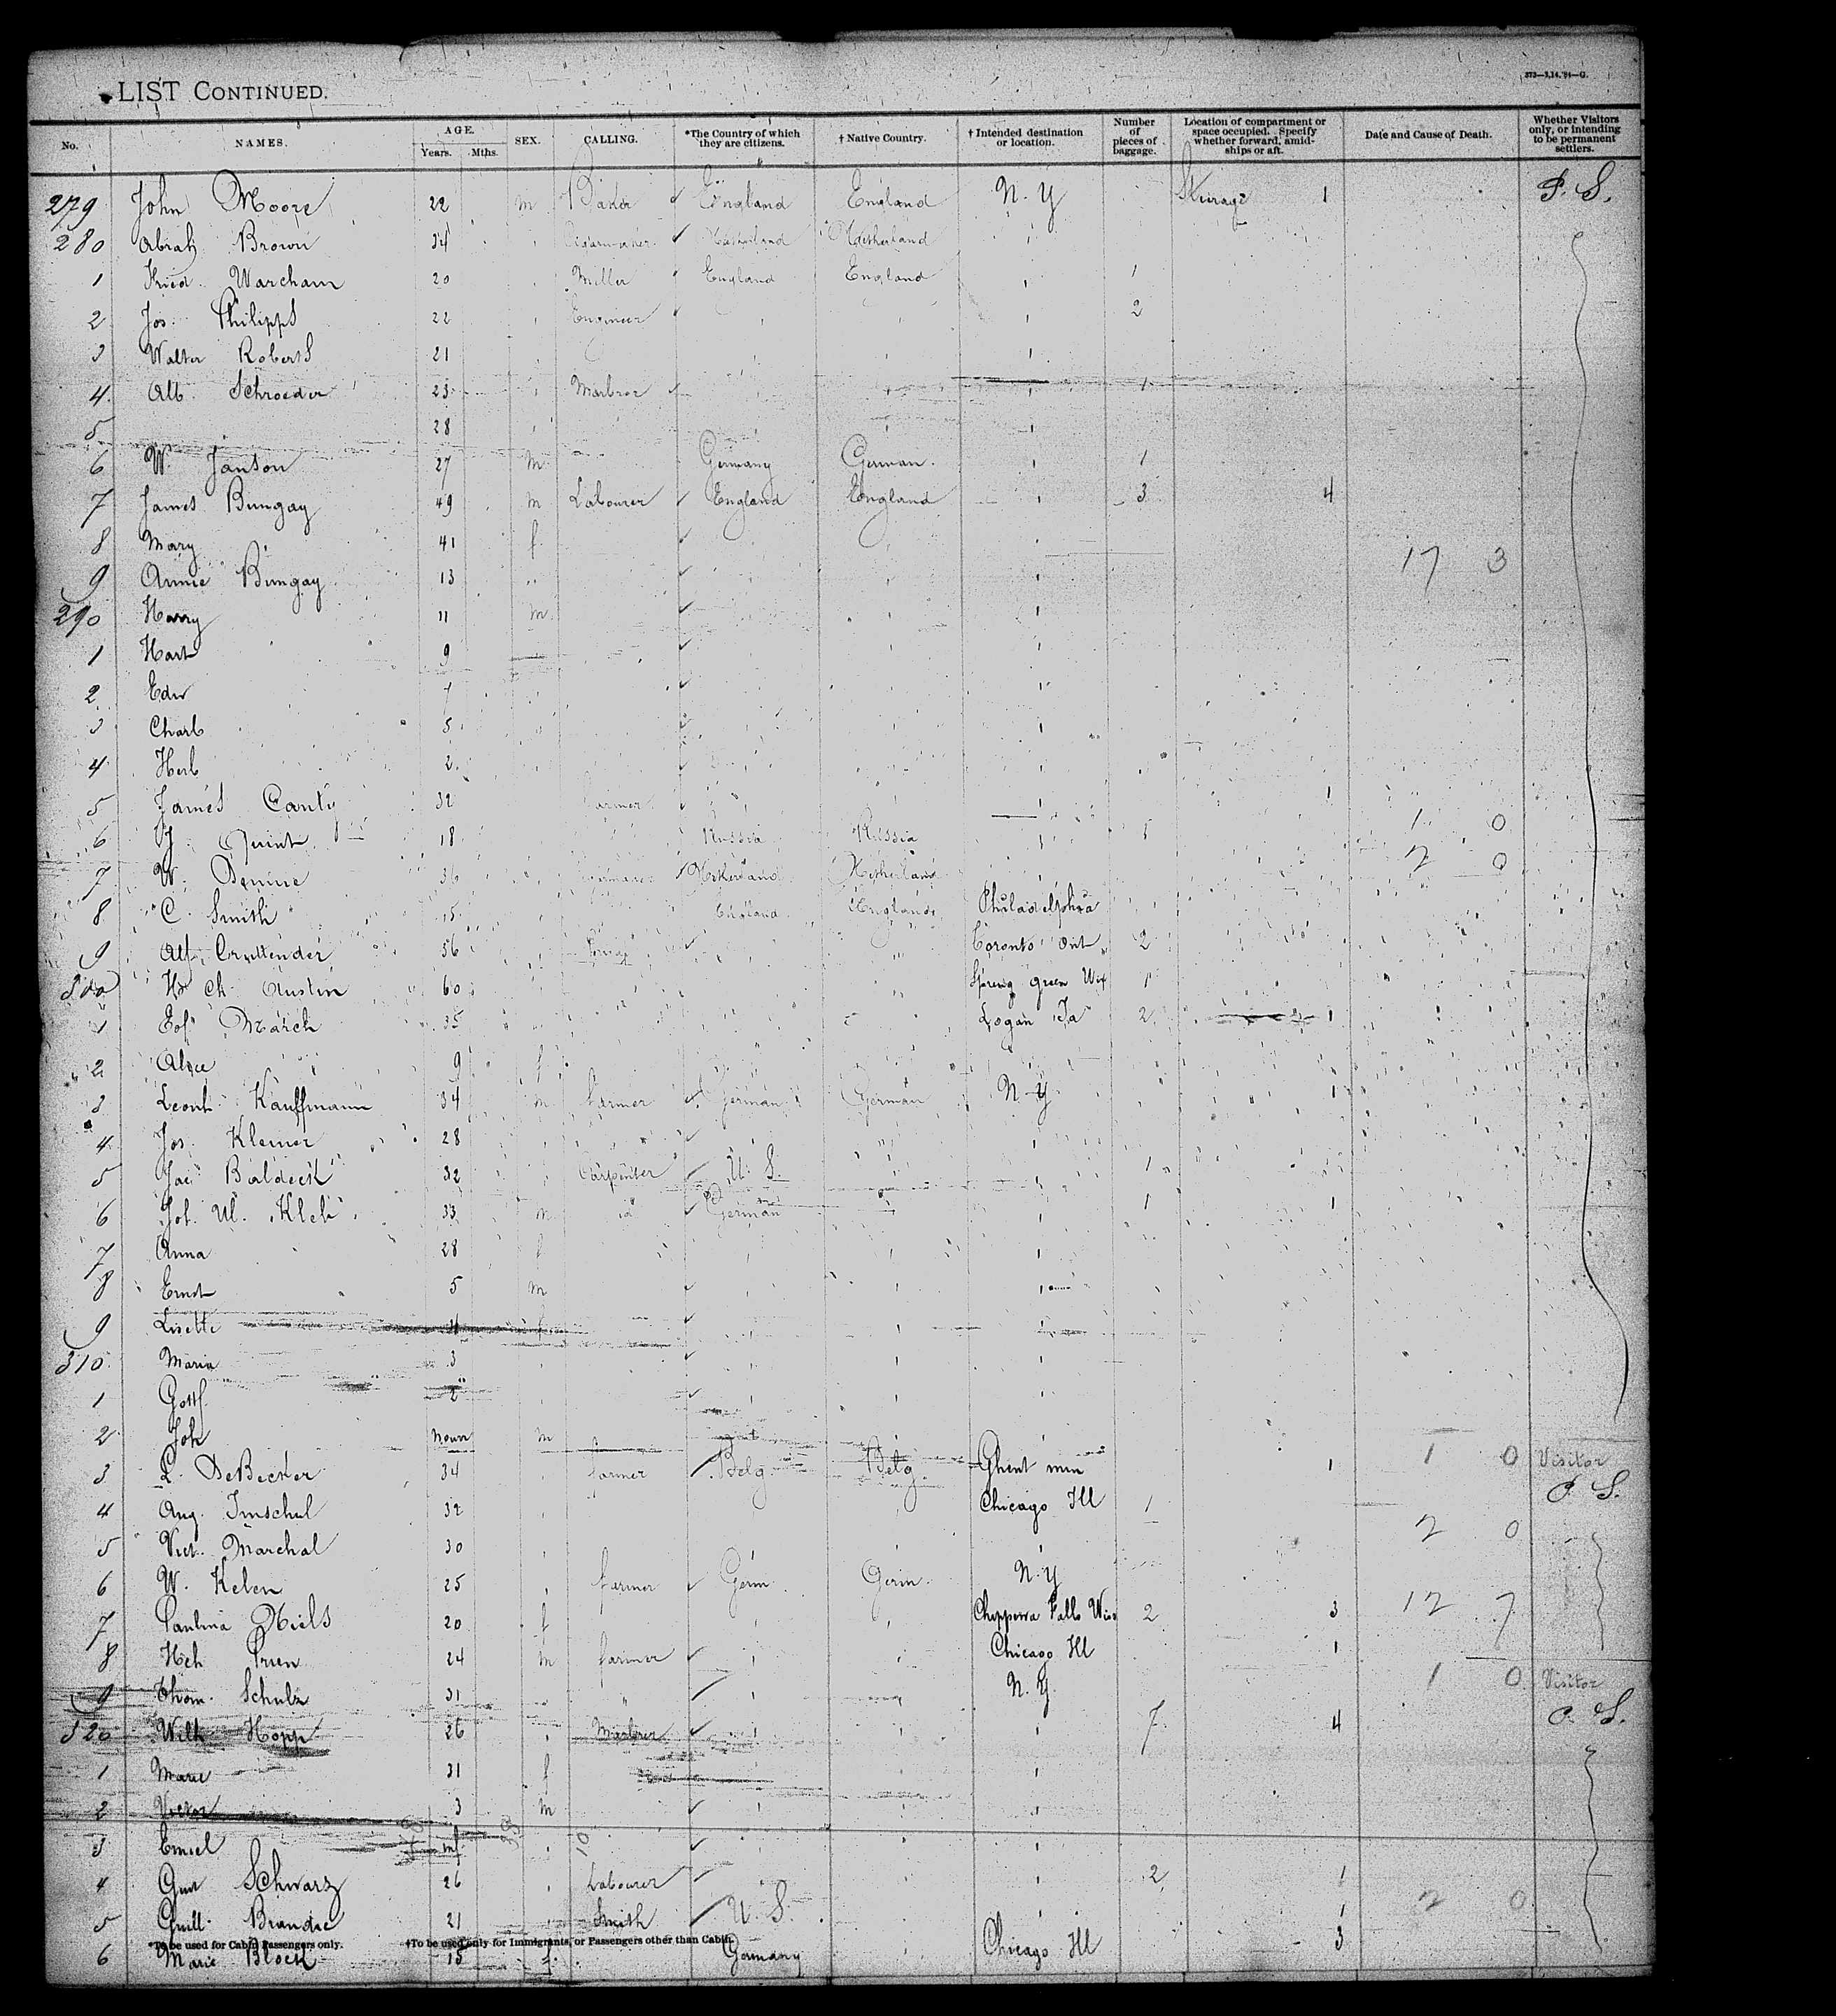 LIST CONTINUED.
373—3,14,'94—G.
No. NAMES. AGE. Years. Mths. SEX. CALLING. *The Country of which they are citizens. † Native Country. † Intended destination or location. Number of pieces of baggage. Location of compartment or space occupied. Specify whether forward, amidships or aft. Date and Cause of Death. Whether Visitors only, or intending to be permanent settlers.
279 John Moore 22 m Baker England England N.Y 1 P. S.
280 Brown 34
1 Warcham 20 Miller England England 1
2 Jos. Philipps 22 Engineer 2
3 Walter Roberts 21
4 Alb. Schroeder 23 1
5 28
6 W. Janson 27 m Germany German 1
7 James Bungay 49 m Labourer England England 3 4
8 Mary 41 f
17 3
9 Annie Bungay 13
290 Harry 11 m
1 Hart 9
2 Edw 7
3 Charl 5
4 Herb 2
5 James Canty 32 farmer 1
6 J. Quint 18 Russia Russia 1 1 0
7 W. 36 2 0
8 C. Smith 15 England England Philadelphia
9 Alf. Cruttender 56 Toronto Ont 2
300 Ch. Austin 60 Spring Green Wis 1
1 March 35 Logan Ia 2 1
2 Alice 9 f
3 Leonh. Kauffmann 34 m farmer German German N.Y 1
4 Jos. Klemer 28
5 Jac. Baldeck 32 Carpenter U. S. 1
6 Joh. Ul. 33 m German 1 1
7 Anna 28 f
8 Ernst 5 m
9 Lisette 4 f
310 Maria 3
1 Gottf 2
2 Joh m
3 L. DeBecker 34 farmer Belg. Belg. Ghent min 1 1 0 Visitor
4 Aug. 32 Chicago Ill 1 P. S.
5 Vict. Marchal 30 2 0
6 W. Kelen 25 farmer Germ. Germ. N.Y
7 Paulina Niels 20 f Chippewa Falls Wis 2 3 12 7
8 Hch Prien 24 m farmer Chicago Ill 1
9 Thom. Schulz 31 " N.Y. 1 0 Visitor
320 Wilh Hopp 26 7 4 P. S.
1 Marie 31 f
2 Victor 3 m
3 Emiel
4 Schwarz 26 Labourer 2 1
5 21 Smith U. S. 1 2 0
*To be used for Cabin Passengers only. †To be used only for Immigrants, or Passengers other than Cabin.
6 Marie Block 15 f. Germany Chicago Ill 3